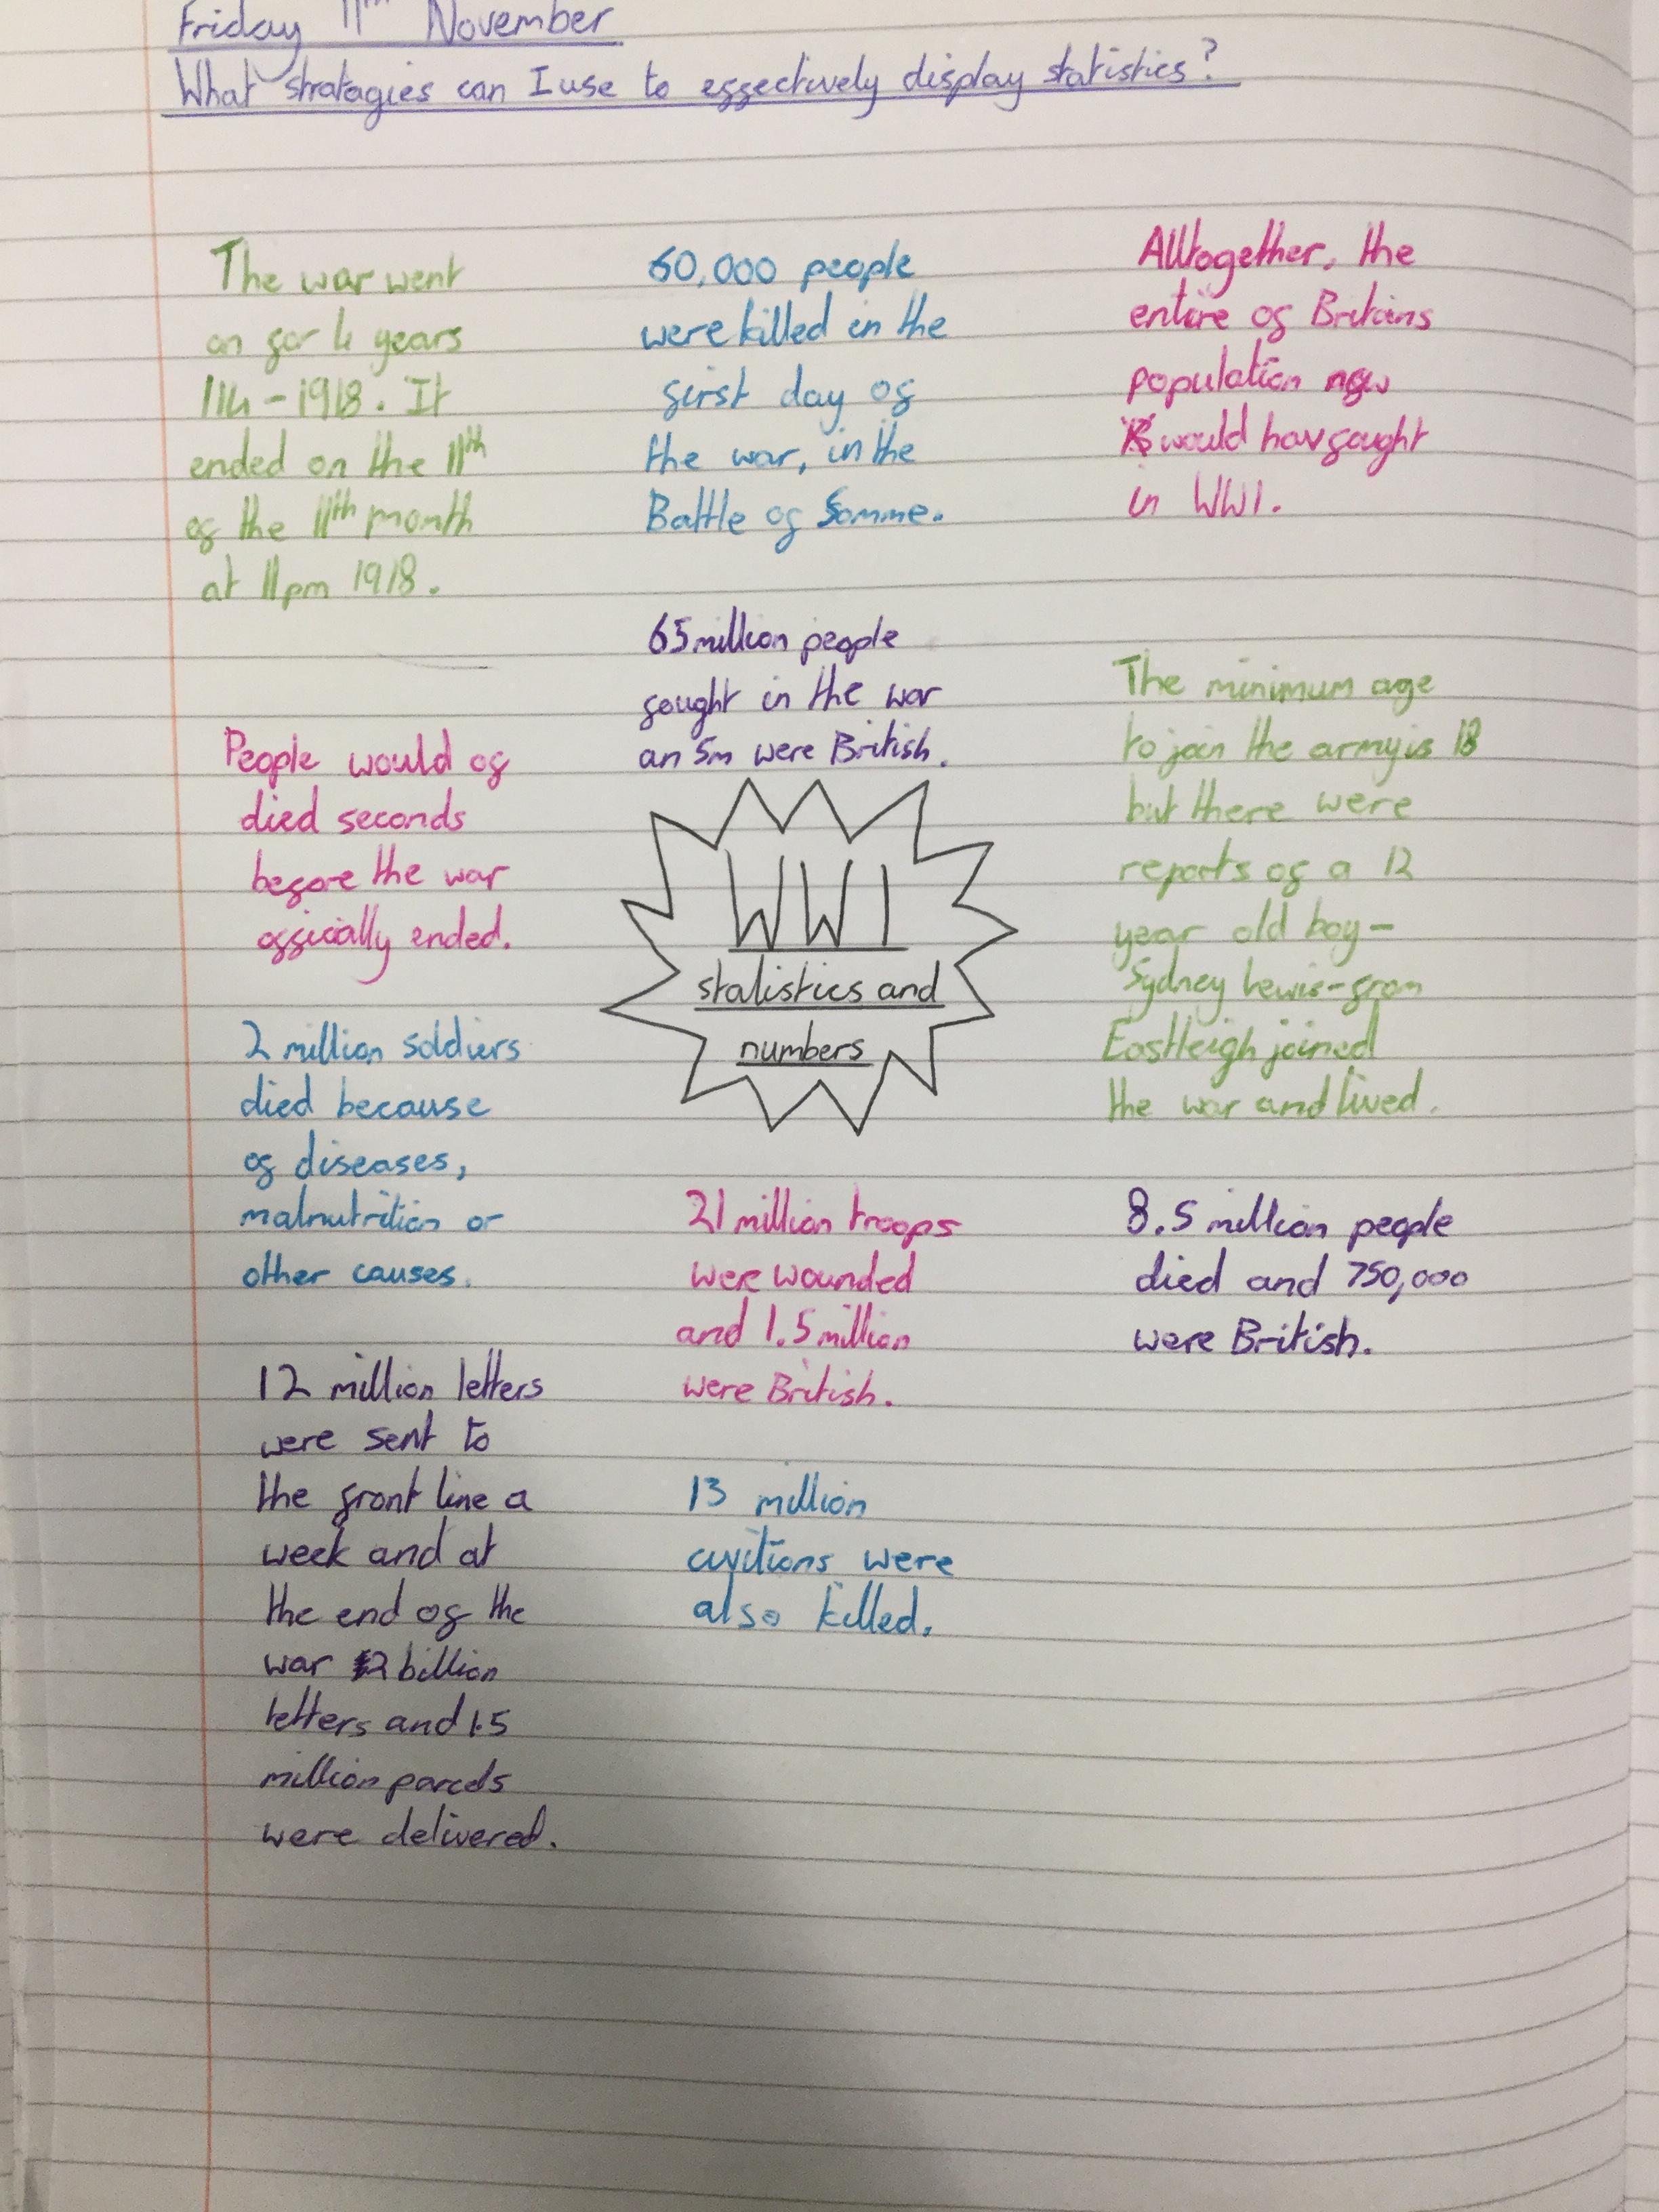 Friday 11th November
What stratagies can I use to effectively display statistics?
The war went
on for 4 years
114-1918. It
ended on the 11th
of the 11th month
at 11pm 1918.
60,000 people
were killed in the
first day of
the war, in the
Battle of Somme.
Alltogether, the
entire of Britains
population now
would hav fought
in WW1.
65 million people
fought in the war
an 5m were British.
People would of
died seconds
before the war
officially ended.
WW1
statistics and
numbers
The minimum age
to join the army is 18
but there were
reports of a 12
year old boy-
Sydney Lewis-from
Eastleigh joined
the war and lived.
2 million soldiers
died because
of diseases,
malnutrition or
other causes.
21 million troops
were wounded
and 1.5 million
were British.
8.5 million people
died and 750,000
were British.
12 million letters
were sent to
the front line a
week and at
the end of the
war 2 billion
letters and 1.5
million parcels
were delivered.
13 million
were
also killed.